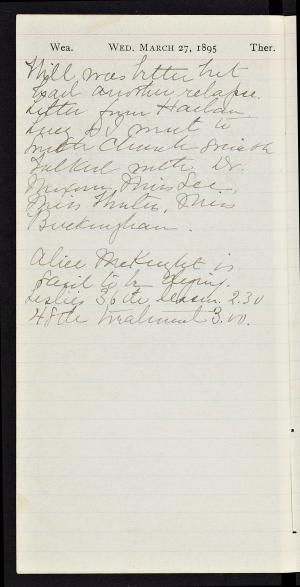 Wea. WED. MARCH 27, 1895 Ther.
Will was better but
had another relapse.
Letter from Harlan
Lucy & I went to
Church
Talked with Dr.
Nixon, Miss Lee,
Miss Hunter, Miss
Buckingham.
Alice McKnight is
said to be dying.
Leslie's 36th lesson 2.30
48th treatment 3.00.